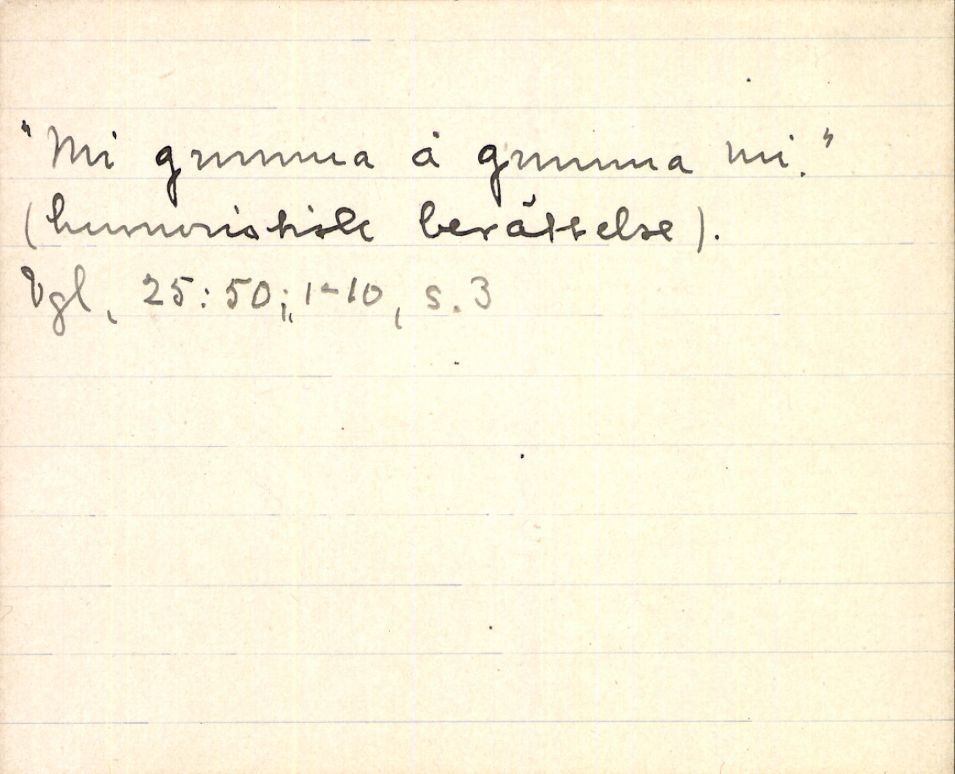 "Mi grumma å grumma mi."
(humoristisk berättelse).
Vgl, 25:50; 1-10, s. 3